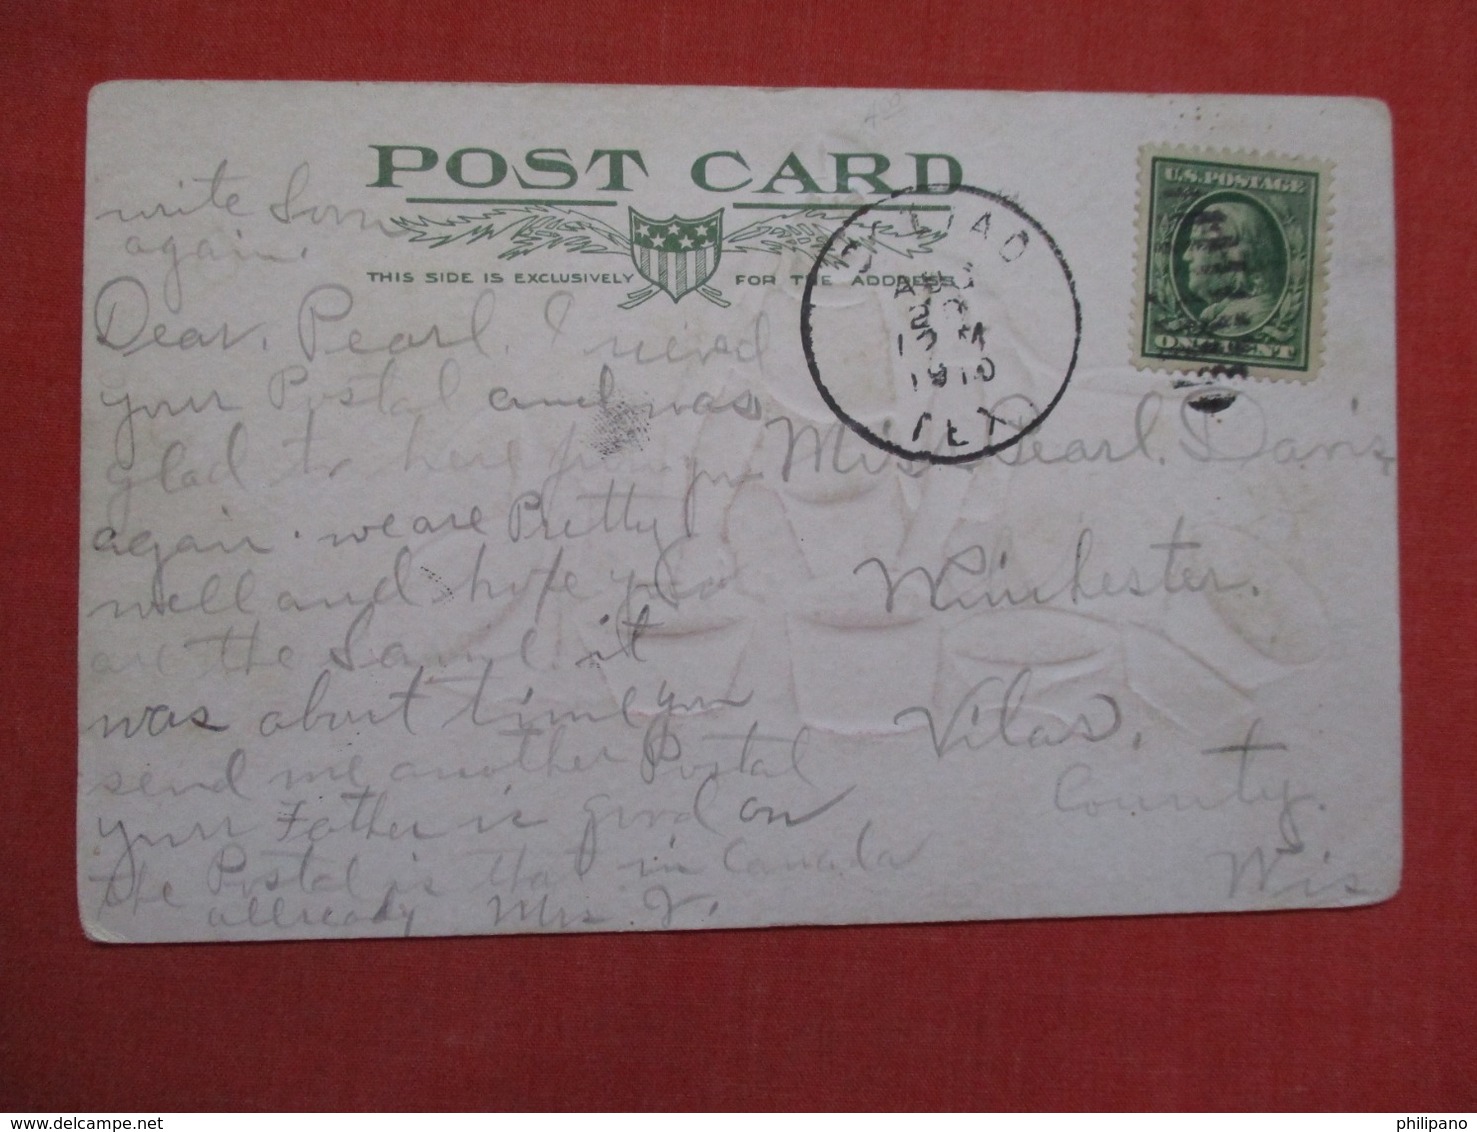 POST CARD
THIS SIDE IS EXCLUSIVELY FOR THE ADDRESS
U.S. POSTAGE
ONE CENT
12 M
1910
TEX
write Soon
again.
Dear. Pearl. I recived
your Postal and was
glad to here from you
again. we are Pretty
well and hope you
are the Same. it
was about time you
send me another Postal
your Father is good on
the Postal is that in Canada
allready Mrs. V.
Miss Pearl. Davis
Winchester.
Vilas.
County.
Wis
philipano